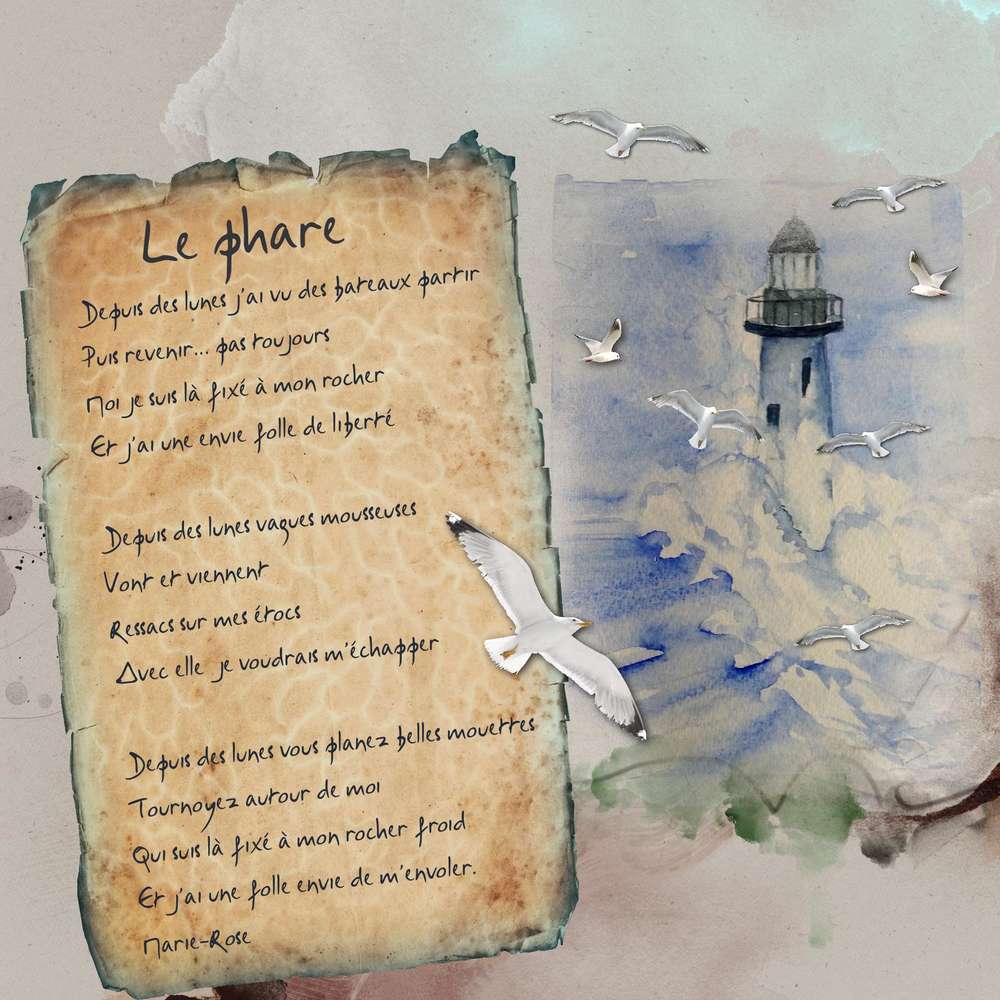 Le phare
Depuis des lunes j'ai vu des bateaux partir
Puis revenir... pas toujours
Moi je suis là fixé à mon rocher
Et j'ai une envie folle de liberté
Depuis des lunes vagues mousseuses
Vont et viennent
Ressacs sur mes étocs
Avec elle je voudrais m'échapper
Depuis des lunes vous planez belles mouettes
Tournoyez autour de moi
Qui suis là fixé à mon rocher froid
Et j'ai une folle envie de m'envoler.
Marie-Rose